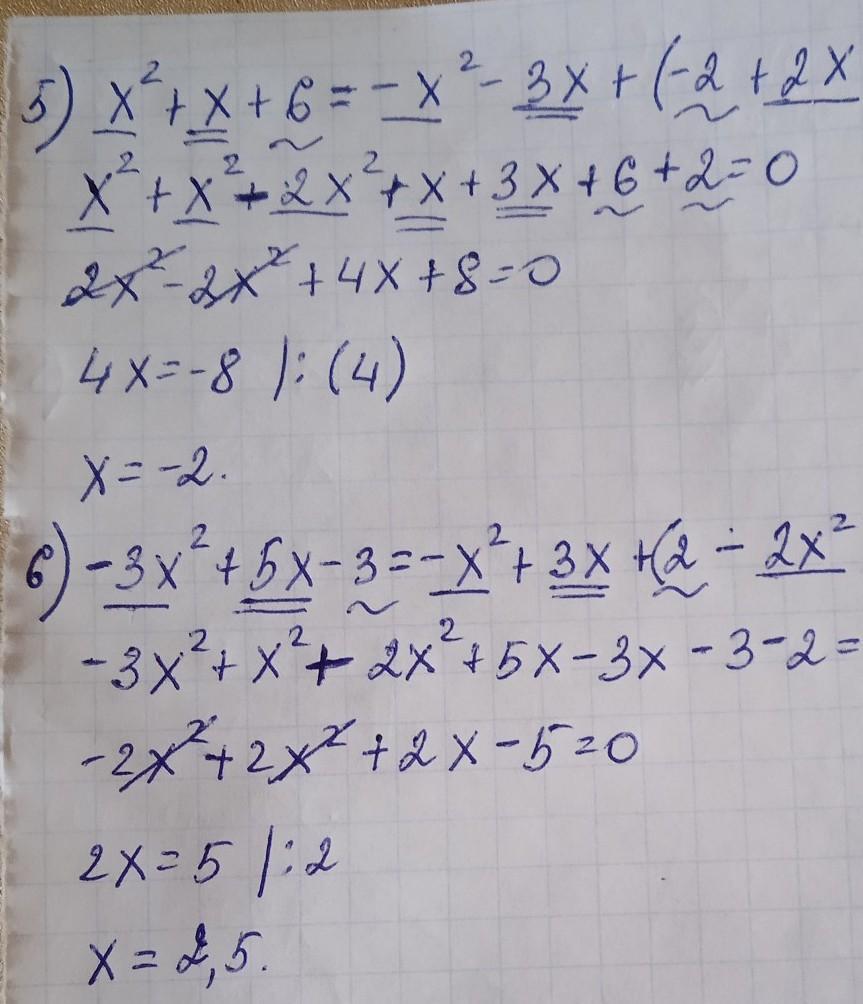 5) x² + x + 6 = -x² - 3x + (-2 + 2x
x² + x² - 2x² + x + 3x + 6 + 2 = 0
2x² - 2x² + 4x + 8 = 0
4x = -8 |: (4)
x = -2.
6) -3x² + 5x - 3 = -x² + 3x + (2 - 2x²
-3x² + x² + 2x² + 5x - 3x - 3 - 2 =
-2x² + 2x² + 2x - 5 = 0
2x = 5 |: 2
x = 2,5.